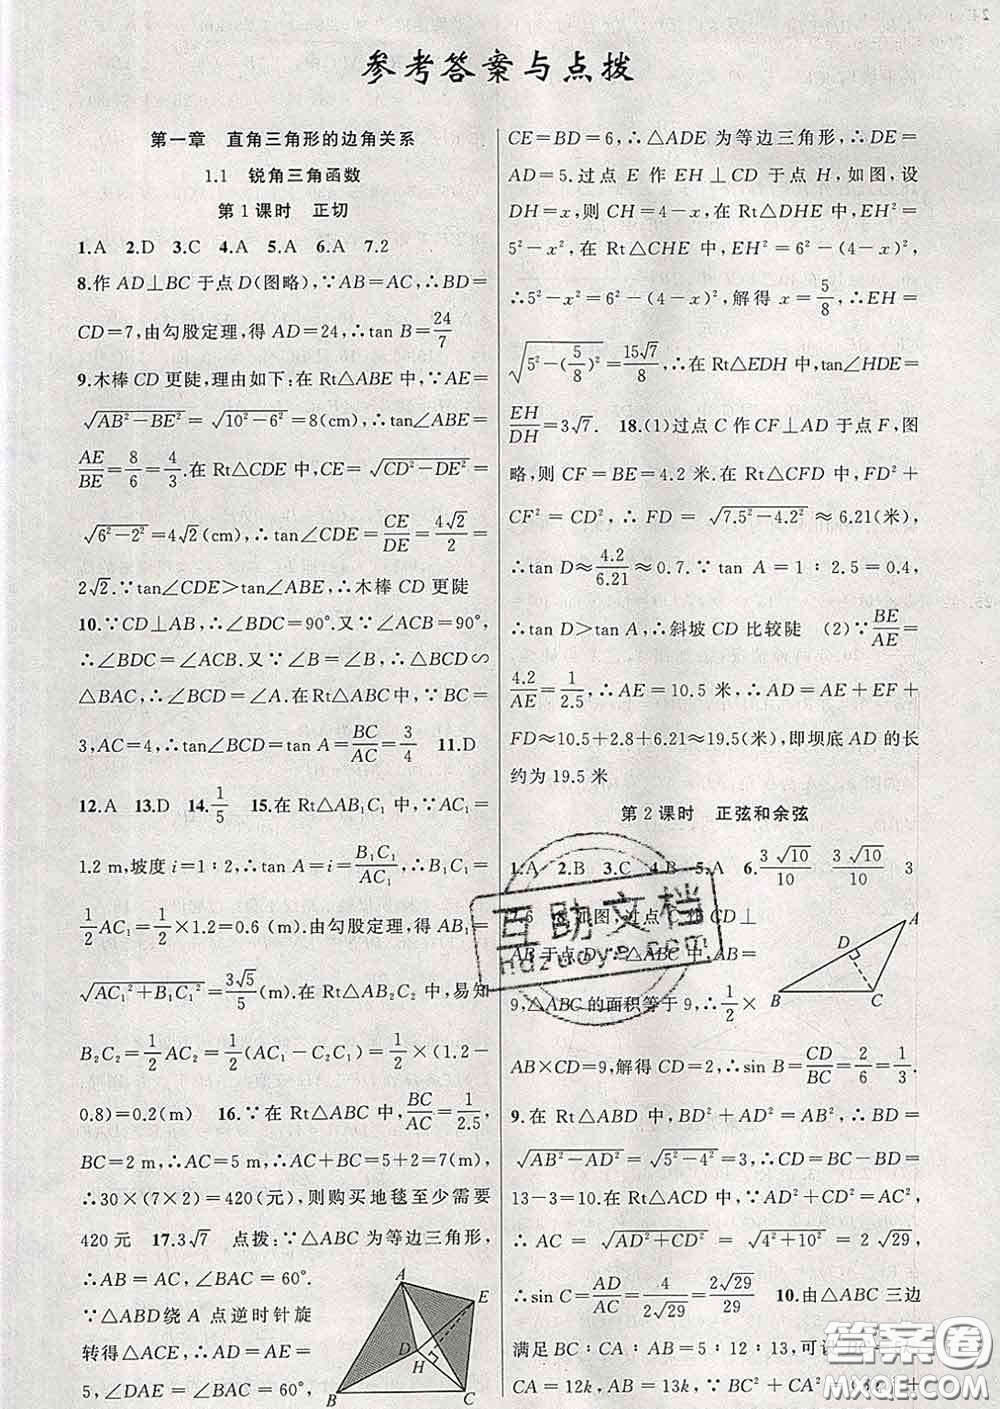 参考答案与点拨
第一章 直角三角形的边角关系
1.1 锐角三角函数
第1课时 正切
1.A 2.D 3.C 4.A 5.A 6.A 7.2
8.作 AD⊥BC 于点 D(图略),∵AB=AC,∴BD=
CD=7,由勾股定理,得 AD=24,∴tan B=24/7
9.木棒 CD 更陡,理由如下:在 Rt△ABE 中,∵AE=
√(AB²-BE²)=√(10²-6²)=8(cm),∴tan∠ABE=
AE/BE=8/6=4/3.在 Rt△CDE 中,CE=√(CD²-DE²)=
√(6²-2²)=4√2(cm),∴tan∠CDE=CE/DE=4√2/2=
2√2.∵tan∠CDE>tan∠ABE,∴木棒 CD 更陡
10.∵CD⊥AB,∴∠BDC=90°.又∵∠ACB=90°,
∴∠BDC=∠ACB.又∵∠B=∠B,∴△BCD∽
△BAC,∴∠BCD=∠A.在 Rt△ABC 中,∵BC=
3,AC=4,∴tan∠BCD=tan A=BC/AC=3/4 11.D
12.A 13.D 14.1/5 15.在 Rt△AB₁C₁ 中,∵AC₁=
1.2 m,坡度 i=1:2,∴tan A=i=B₁C₁/AC₁,∴B₁C₁=
1/2 AC₁=1/2×1.2=0.6 (m).由勾股定理,得 AB₁=
√(AC₁²+B₁C₁²)=3√5/5(m).在 Rt△AB₂C₂ 中,易知
B₂C₂=1/2 AC₂=1/2(AC₁-C₂C₁)=1/2×(1.2-
0.8)=0.2(m) 16.∵在 Rt△ABC 中,BC/AC=1/2.5,
BC=2 m,∴AC=5 m,∴AC+BC=5+2=7(m),
∴30×(7×2)=420(元),则购买地毯至少需要
420元 17.3√7 点拨:∵△ABC 为等边三角形,
∴AB=AC,∠BAC=60°.
∵△ABD绕 A 点逆时针旋
转得△ACE,∴AD=AE=
5,∠DAE=∠BAC=60°,
A
E
D
H
B
C
CE=BD=6,∴△ADE 为等边三角形,∴DE=
AD=5.过点 E 作 EH⊥CD 于点 H,如图,设
DH=x,则 CH=4-x,在 Rt△DHE 中,EH²=
5²-x²,在 Rt△CHE 中,EH²=6²-(4-x)²,
∴5²-x²=6²-(4-x)²,解得 x=5/8,∴EH=
√(5²-(5/8)²)=15√7/8,∴在 Rt△EDH 中,tan∠HDE=
EH/DH=3√7. 18.(1)过点 C 作 CF⊥AD 于点 F,图
略,则 CF=BE=4.2 米.在 Rt△CFD 中,FD²+
CF²=CD²,∴FD=√(7.5²-4.2²)≈6.21(米),
∴tan D≈4.2/6.21≈0.7.∵tan A=1:2.5=0.4,
∴tan D>tan A,∴斜坡 CD 比较陡 (2)∵BE/AE=
4.2/AE=1/2.5,∴AE=10.5 米,∴AD=AE+EF+
FD≈10.5+2.8+6.21≈19.5(米),即坝底 AD 的长
约为 19.5 米
第2课时 正弦和余弦
1.A 2.B 3.C 4.B 5.A 6.3√10/10 3√10/10 3
7.6 8.如图,过点 作 CD⊥
AB 于点 D,∵△ABC
9,△ABC 的面积等于 9,∴1/2×
A
D
B
C
AB×CD=9,解得 CD=2,∴sin B=CD/BC=2/6=1/3.
9.在 Rt△ABD 中,BD²+AD²=AB²,∴BD=
√(AB²-AD²)=√(5²-4²)=3,∴CD=BC-BD=
13-3=10.在 Rt△ACD 中,∵AD²+CD²=AC²,
∴AC=√(AD²+CD²)=√(4²+10²)=2√29,
∴sin C=AD/AC=4/2√29=2√29/29 10.由△ABC 三边
满足 BC:CA:AB=5:12:13,可设
CA=12k,AB=13k,∵BC²+CA²
互助文档
hdzuoye.com
答案圈
MXQE.COM